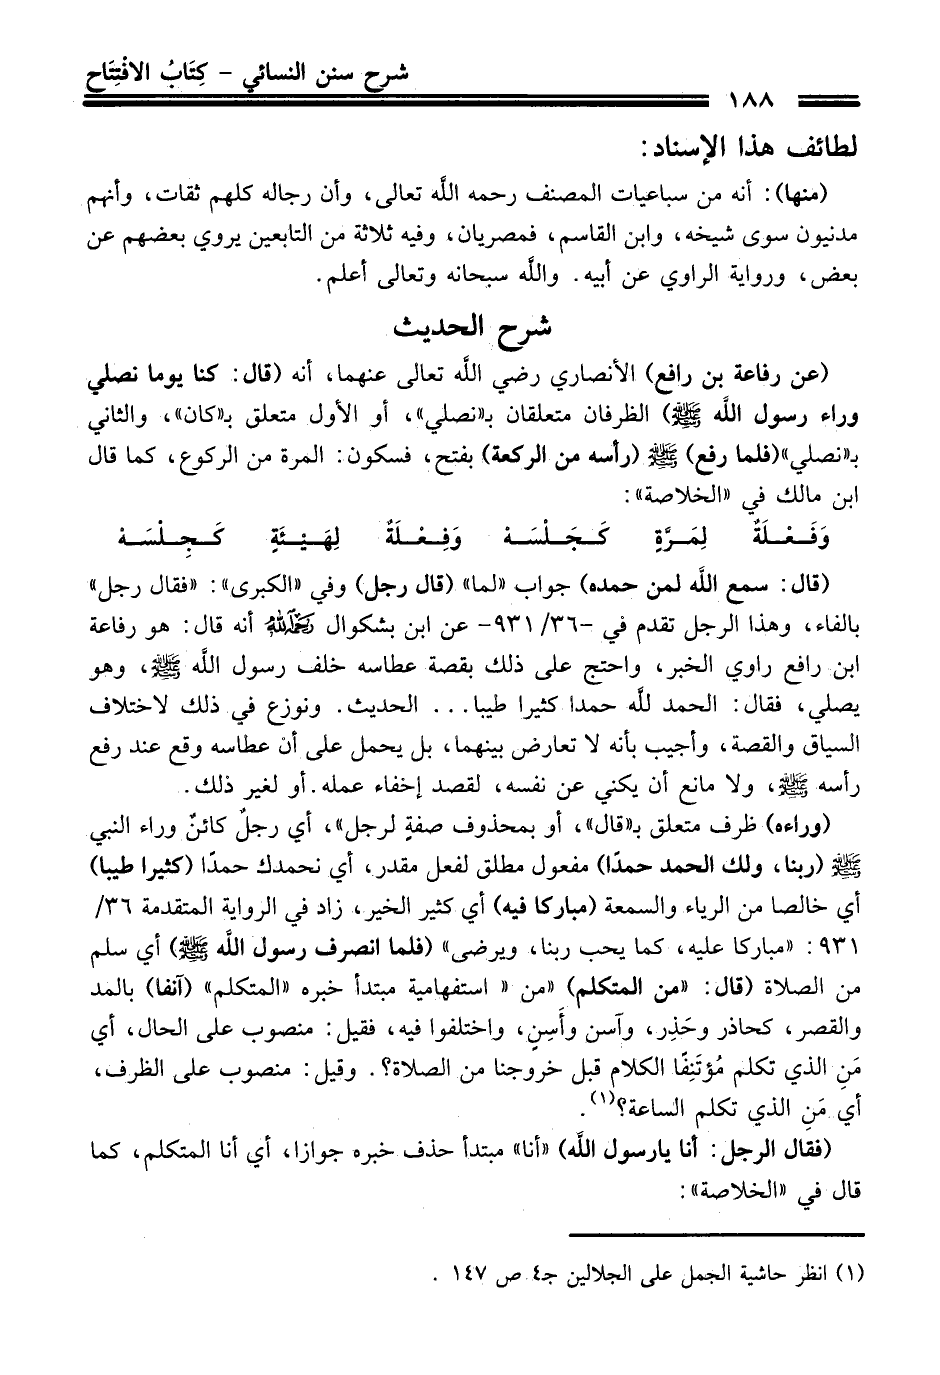 شرح سنن النسائي - كِتَابُ الافْتِتَاح
١٨٨
لطائف هذا الإسناد:
(منها): أنه من سباعيات المصنف رحمه اللَّه تعالى، وأن رجاله كلهم ثقات، وأنهم
مدنيون سوى شيخه، وابن القاسم، فمصريان، وفيه ثلاثة من التابعين يروي بعضهم عن
بعض، ورواية الراوي عن أبيه. واللَّه سبحانه وتعالى أعلم.
شرح الحديث
(عن رفاعة بن رافع) الأنصاري رضي اللَّه تعالى عنهما، أنه (قال: كنا يوما نصلي
وراء رسول اللَّه ﷺ) الظرفان متعلقان بـ«نصلي»، أو الأول متعلق بـ«كان»، والثاني
بـ«نصلي»(فلما رفع) ﷺ (رأسه من الركعة) بفتح، فسكون: المرة من الركوع، كما قال
ابن مالك في «الخلاصة»:
وَفَـعْـلَـةٌ لِمَـرَّةٍ كَـجَـلْـسَـهْ وَفِـعْـلَـةٌ لِهَـيْـئَـةٍ كَـجِـلْـسَـهْ
(قال: سمع اللَّه لمن حمده) جواب «لما» (قال رجل) وفي «الكبرى»: «فقال رجل»
بالفاء، وهذا الرجل تقدم في -٣٦/ ٩٣١- عن ابن بشكوال رَحِمَهُ اللهُ أنه قال: هو رفاعة
ابن رافع راوي الخبر، واحتج على ذلك بقصة عطاسه خلف رسول اللَّه ﷺ، وهو
يصلي، فقال: الحمد للَّه حمدا كثيرا طيبا... الحديث. ونوزع في ذلك لاختلاف
السياق والقصة، وأجيب بأنه لا تعارض بينهما، بل يحمل على أن عطاسه وقع عند رفع
رأسه ﷺ، ولا مانع أن يكني عن نفسه، لقصد إخفاء عمله.أو لغير ذلك.
(وراءه) ظرف متعلق بـ«قال»، أو بمحذوف صفةٍ لرجل»، أي رجلٌ كائنٌ وراء النبي
ﷺ (ربنا، ولك الحمد حمدًا) مفعول مطلق لفعل مقدر، أي نحمدك حمدًا (كثيرا طيبا)
أي خالصا من الرياء والسمعة (مباركا فيه) أي كثير الخير، زاد في الرواية المتقدمة ٣٦/
٩٣١: «مباركا عليه، كما يحب ربنا، ويرضى» (فلما انصرف رسول اللَّه ﷺ) أي سلم
من الصلاة (قال: «من المتكلم) «من « استفهامية مبتدأ خبره «المتكلم» (آنفا) بالمد
والقصر، كحاذر وحَذِر، وآسن وأَسِنٍ، واختلفوا فيه، فقيل: منصوب على الحال، أي
مَنِ الذي تكلم مُؤتَنِفًا الكلام قبل خروجنا من الصلاة؟. وقيل: منصوب على الظرف،
أي مَنِ الذي تكلم الساعة؟(١).
(فقال الرجل: أنا يارسول اللَّه) «أنا» مبتدأ حذف خبره جوازا، أي أنا المتكلم، كما
قال في «الخلاصة»:
(١) انظر حاشية الجمل على الجلالين جـ٤ ص ١٤٧ .